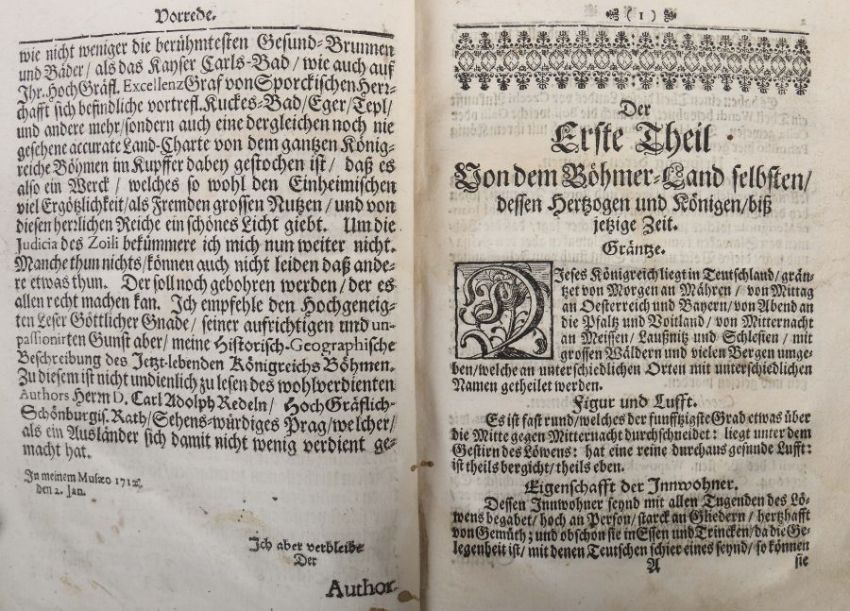 Vorrede.
wie nicht weniger die berühmtesten Gesund-Brunnen
und Bäder/ als das Kayser Carls-Bad/ wie auch auf
Ihr. HochGräfl. Excellenz Graf von Sporckischen Herr-
schafft sich befindliche vortrefl. Kuckes-Bad/ Eger/ Tepl/
und andere mehr/ sondern auch eine dergleichen noch nie
gesehene accurate Land-Charte von dem gantzen König-
reiche Böhmen im Kupffer dabey gestochen ist/ daß es
also ein Werck/ welches so wohl den Einheimischen
viel Ergötzlichkeit/ als Fremden grossen Nutzen/ und von
diesen herrlichen Reiche ein schönes Licht giebt. Um die
Judicia des Zoili bekümmere ich mich nun weiter nicht.
Manche thun nichts/ können auch nicht leiden daß ande-
re etwas thun. Der soll noch gebohren werden/ der es
allen recht machen kan. Ich empfehle den Hochgeneig-
ten Leser Göttlicher Gnade/ seiner aufrichtigen und un-
passionirten Gunst aber/ meine Historisch-Geographische
Beschreibung des Jetzt-lebenden Königreichs Böhmen.
Zu diesem ist nicht undienlich zu lesen des wohlverdienten
Authors Herrn D. Carl Adolph Redeln/ HochGräflich-
Schönburgis. Rath/ Sehens-würdiges Prag/ welcher/
als ein Ausländer sich damit nicht wenig verdient ge-
macht hat.
In meinem Musæo
den 2. Jan.
Ich aber verbleibe
Der
Author.
(1)
Der
Erste Theil
Von dem Böhmer-Land selbsten/
dessen Hertzogen und Königen/ biß
jetzige Zeit.
Gräntze.
Dieses Königreich liegt in Teutschland/ grän-
tzet von Morgen an Mähren/ von Mittag
an Oesterreich und Bayern/ von Abend an
die Pfaltz und Voitland/ von Mitternacht
an Meissen/ Laußnitz und Schlesien/ mit
grossen Wäldern und vielen Bergen umge-
ben/ welche an unterschiedlichen Orten mit unterschiedlichen
Namen getheilet werden.
Figur und Lufft.
Es ist fast rund/ welches der funfftzigste Grad etwas über
die Mitte gegen Mitternacht durchschneidet: liegt unter dem
Gestirn des Löwens: hat eine reine durchaus gesunde Lufft:
ist theils bergicht/ theils eben.
Eigenschafft der Innwohner.
Dessen Innwohner seynd mit allen Tugenden des Lö-
wens begabet/ hoch an Person/ starck an Gliedern/ hertzhafft
von Gemüth; und obschon sie in Essen und Trincken/ da die Ge-
legenheit ist/ mit denen Teutschen schier eines seynd/ so können
A sie